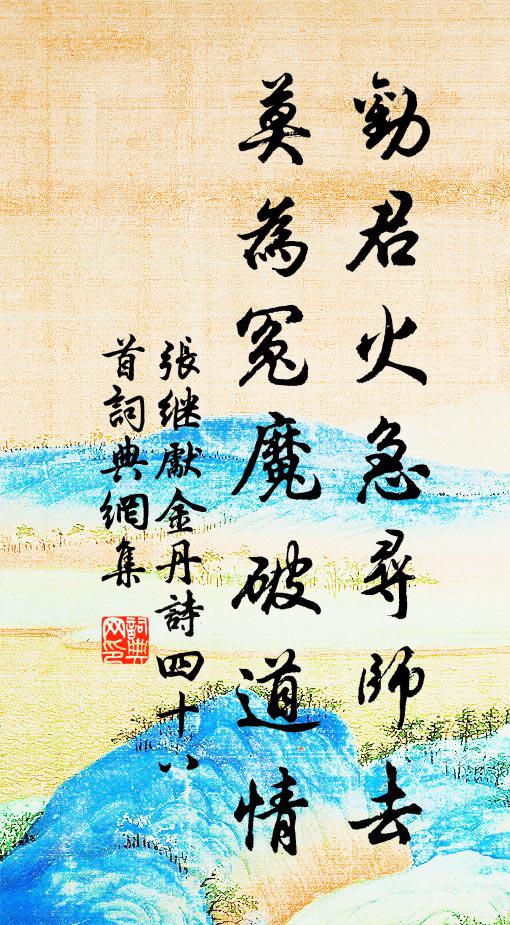 勸君火急尋師去
莫為冤魔破道情
張继獻金丹詩四十八
首詞典網集
詞典
网